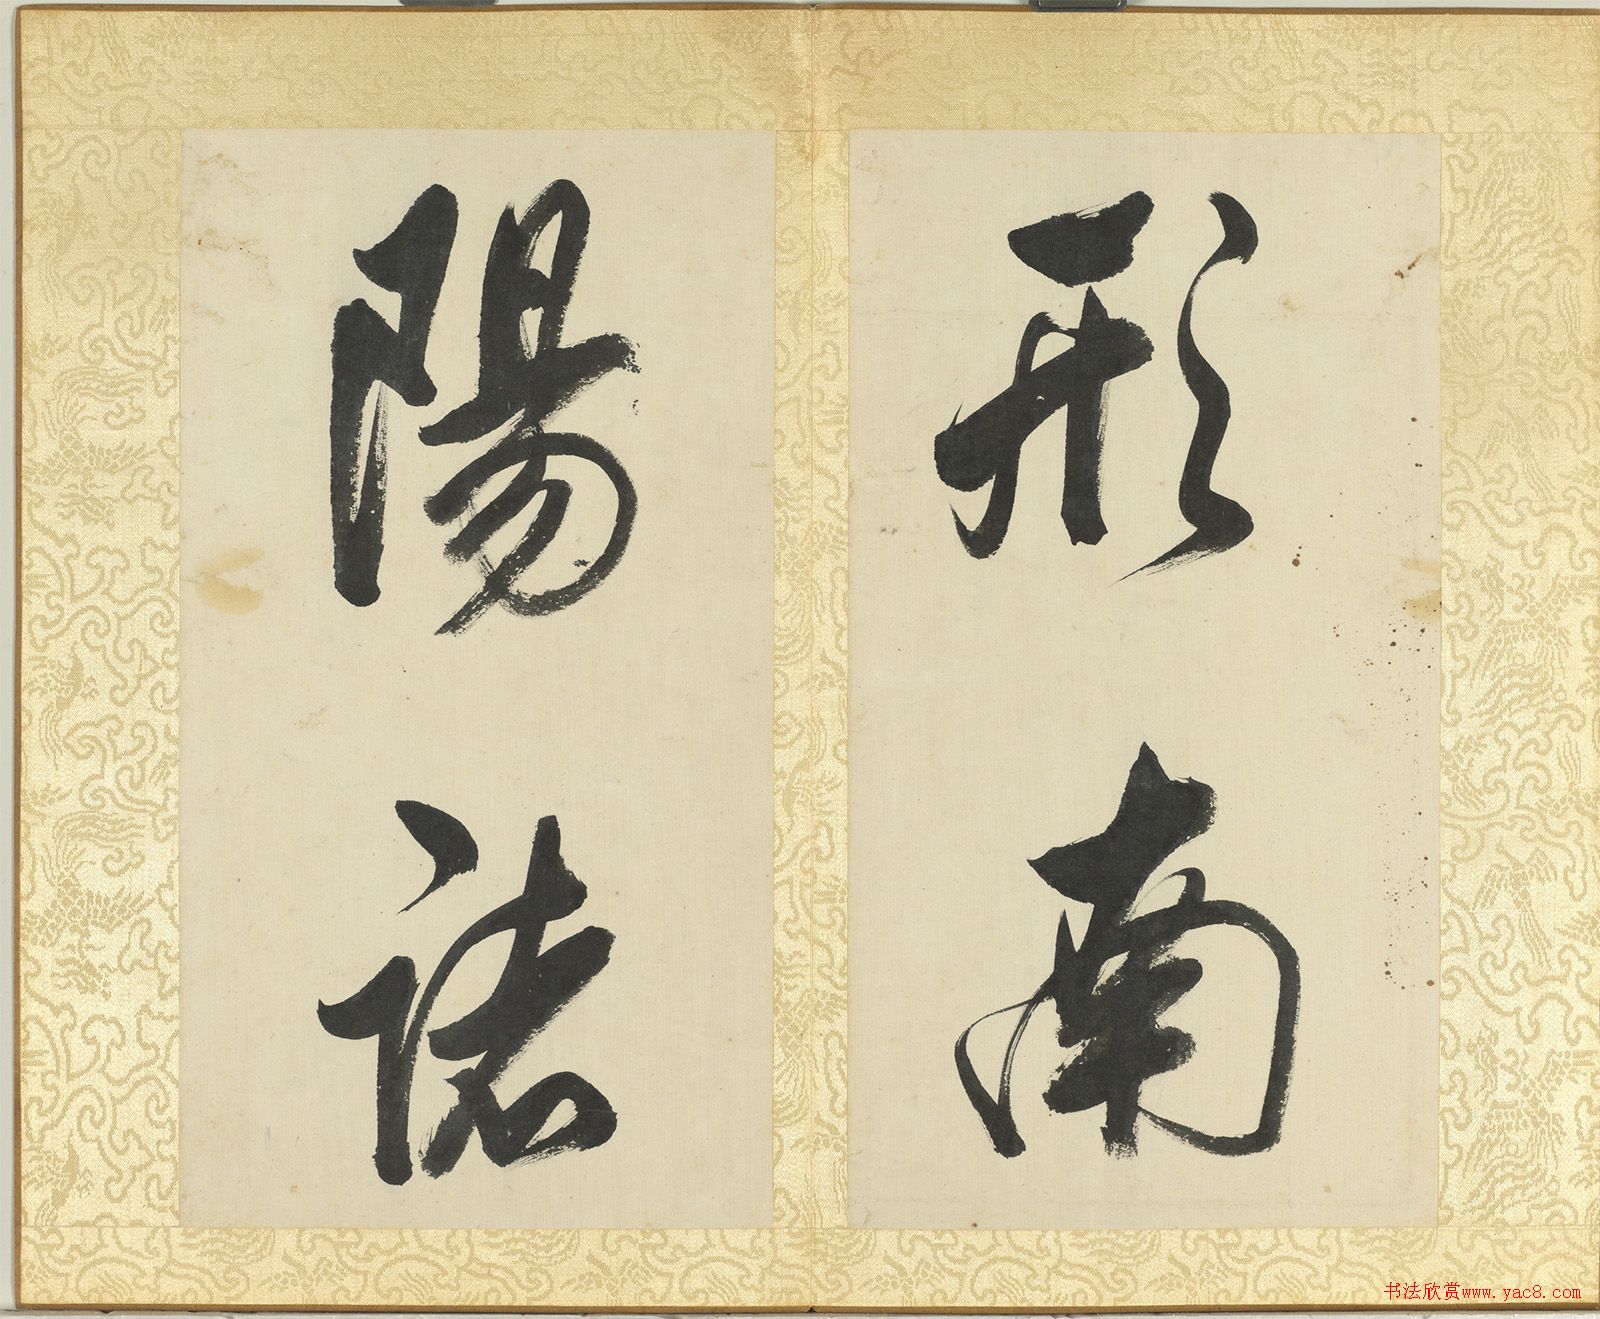 形南
陽諸
书法欣赏www.yac8.com